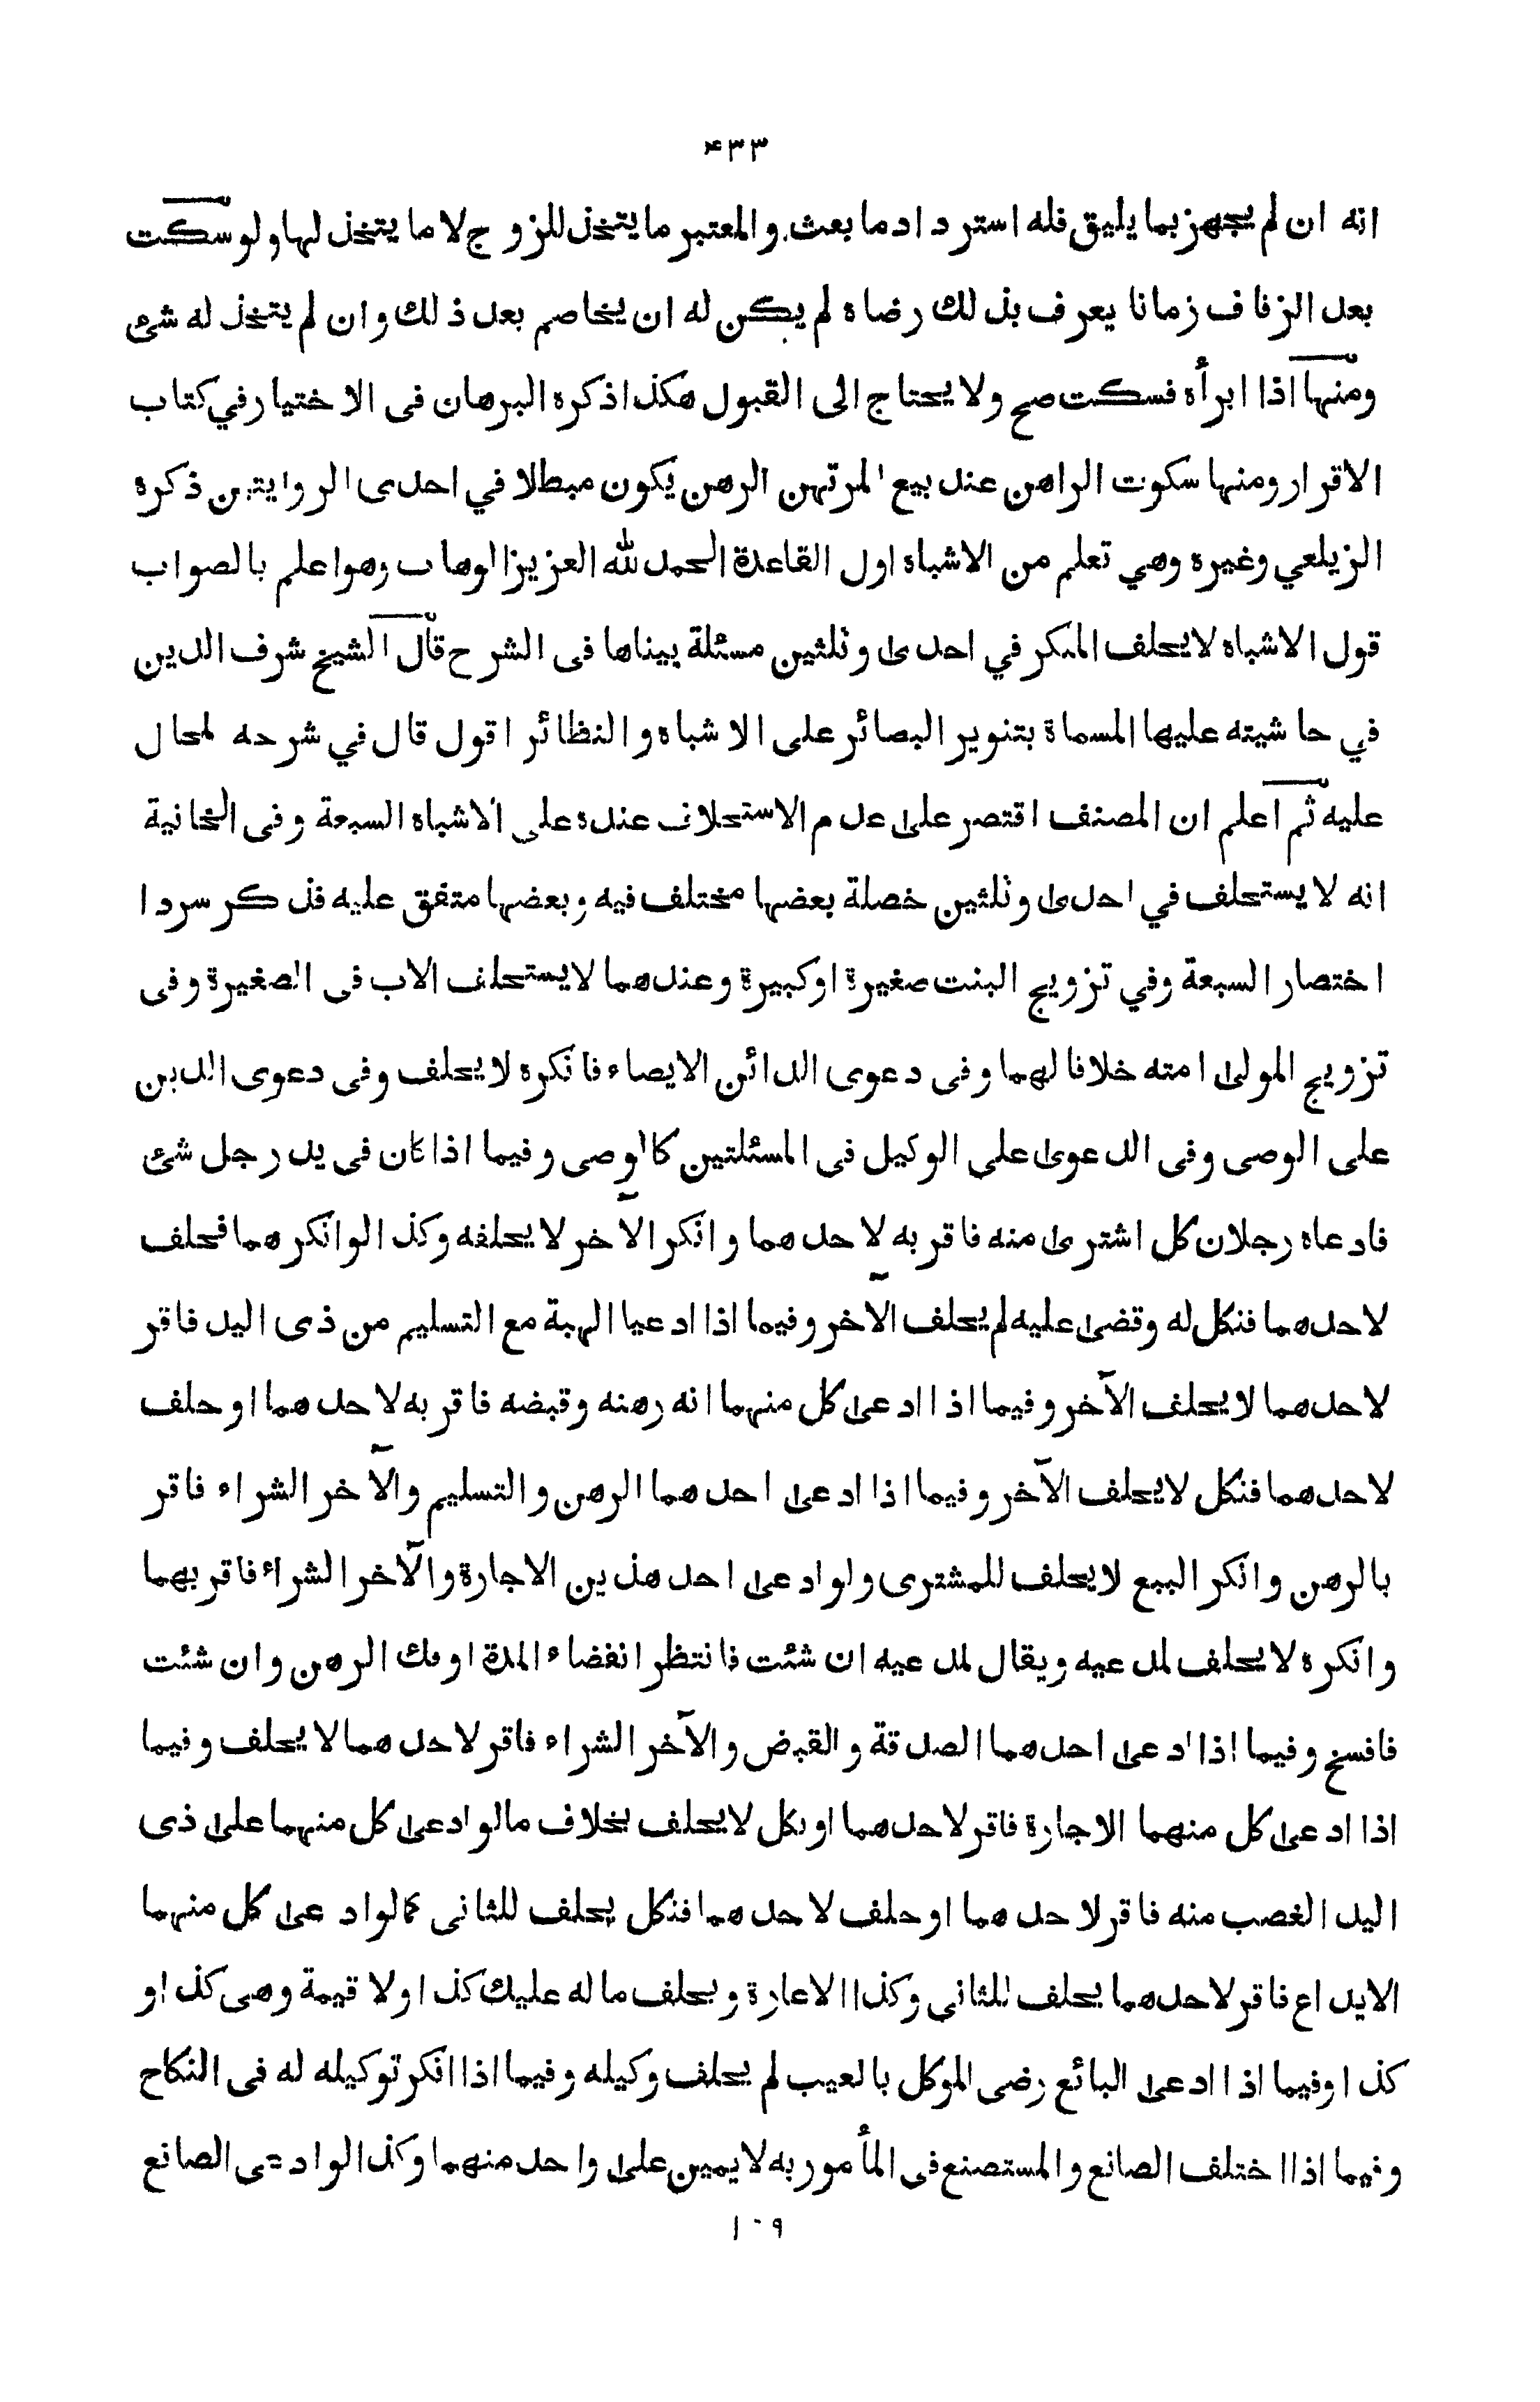 ۴۳۳
انه ان لم يجهز بما يليق فله استرداد ما بعث والمعتبر ما يتخذ للزوج لا ما يتخذ لها ولو سكت
بعد الزفاف زمانا يعرف بذلك رضاه لم يكن له ان يخاصم بعد ذلك وان لم يتخذ له شئ
ومنها اذا ابرأه فسكت صح ولا يحتاج الى القبول هكذا ذكره البرهان فى الاختيار في كتاب
الاقرار ومنها سكوت الراهن عند بيع المرتهن الرهن يكون مبطلا في احدى الروايتين ذكره
الزيلعي وغيره وهي تعلم من الاشباه اول القاعدة الحمد لله العزيز الوهاب وهو اعلم بالصواب
قول الاشباه لا يحلف المنكر في احدى وثلثين مسئلة بيناها فى الشرح قال الشيخ شرف الدين
في حاشيته عليها المسماة بتنوير البصائر على الاشباه والنظائر اقول قال في شرحه لمحال
عليه ثم اعلم ان المصنف اقتصر على عدم الاستحلاف عنده على الاشباه السبعة وفى الخانية
انه لا يستحلف في احدى وثلثين خصلة بعضها مختلف فيه وبعضها متفق عليه فذكر سردا
اختصار السبعة وفي تزويج البنت صغيرة او كبيرة وعندهما لا يستحلف الاب فى الصغيرة وفى
تزويج المولى امته خلافا لهما وفى دعوى الدائن الايصاء فانكره لا يحلف وفى دعوى الدين
على الوصى وفى الدعوى على الوكيل فى المسئلتين كالوصى وفيما اذا كان فى يد رجل شئ
فادعاه رجلان كل اشترى منه فاقر به لاحدهما وانكر الآخر لا يحلفه وكذا لو انكرهما فحلف
لاحدهما فنكل له وقضى عليه لم يحلف الآخر وفيما اذا ادعيا الهبة مع التسليم من ذى اليد فاقر
لاحدهما لا يحلف الآخر وفيما اذا ادعى كل منهما انه رهنه وقبضه فاقر به لاحدهما او حلف
لاحدهما فنكل لا يحلف الآخر وفيما اذا ادعى احدهما الرهن والتسليم والآخر الشراء فاقر
بالرهن وانكر البيع لا يحلف للمشترى ولو ادعى احد هذين الاجارة والآخر الشراء فاقر بهما
وانكره لا يحلف لمدعيه ويقال لمدعيه ان شئت فانتظر انقضاء المدة او فك الرهن وان شئت
فافسخ وفيما اذا ادعى احدهما الصدقة والقبض والآخر الشراء فاقر لاحدهما لا يحلف وفيما
اذا ادعى كل منهما الاجارة فاقر لاحدهما او نكل لا يحلف بخلاف ما لو ادعى كل منهما على ذى
اليد الغصب منه فاقر لاحدهما او حلف لاحدهما فنكل يحلف للثانى كما لو ادعى كل منهما
الايداع فاقر لاحدهما يحلف للثانى وكذا الاعارة ويحلف ما له عليك كذا ولا قيمة وهى كذا و
كذا وفيما اذا ادعى البائع رضى الموكل بالعيب لم يحلف وكيله وفيما اذا انكر توكيله له فى النكاح
وفيما اذا اختلف الصانع والمستصنع فى المأمور به لا يمين على واحد منهما وكذا لو ادعى الصانع
۱۰۹